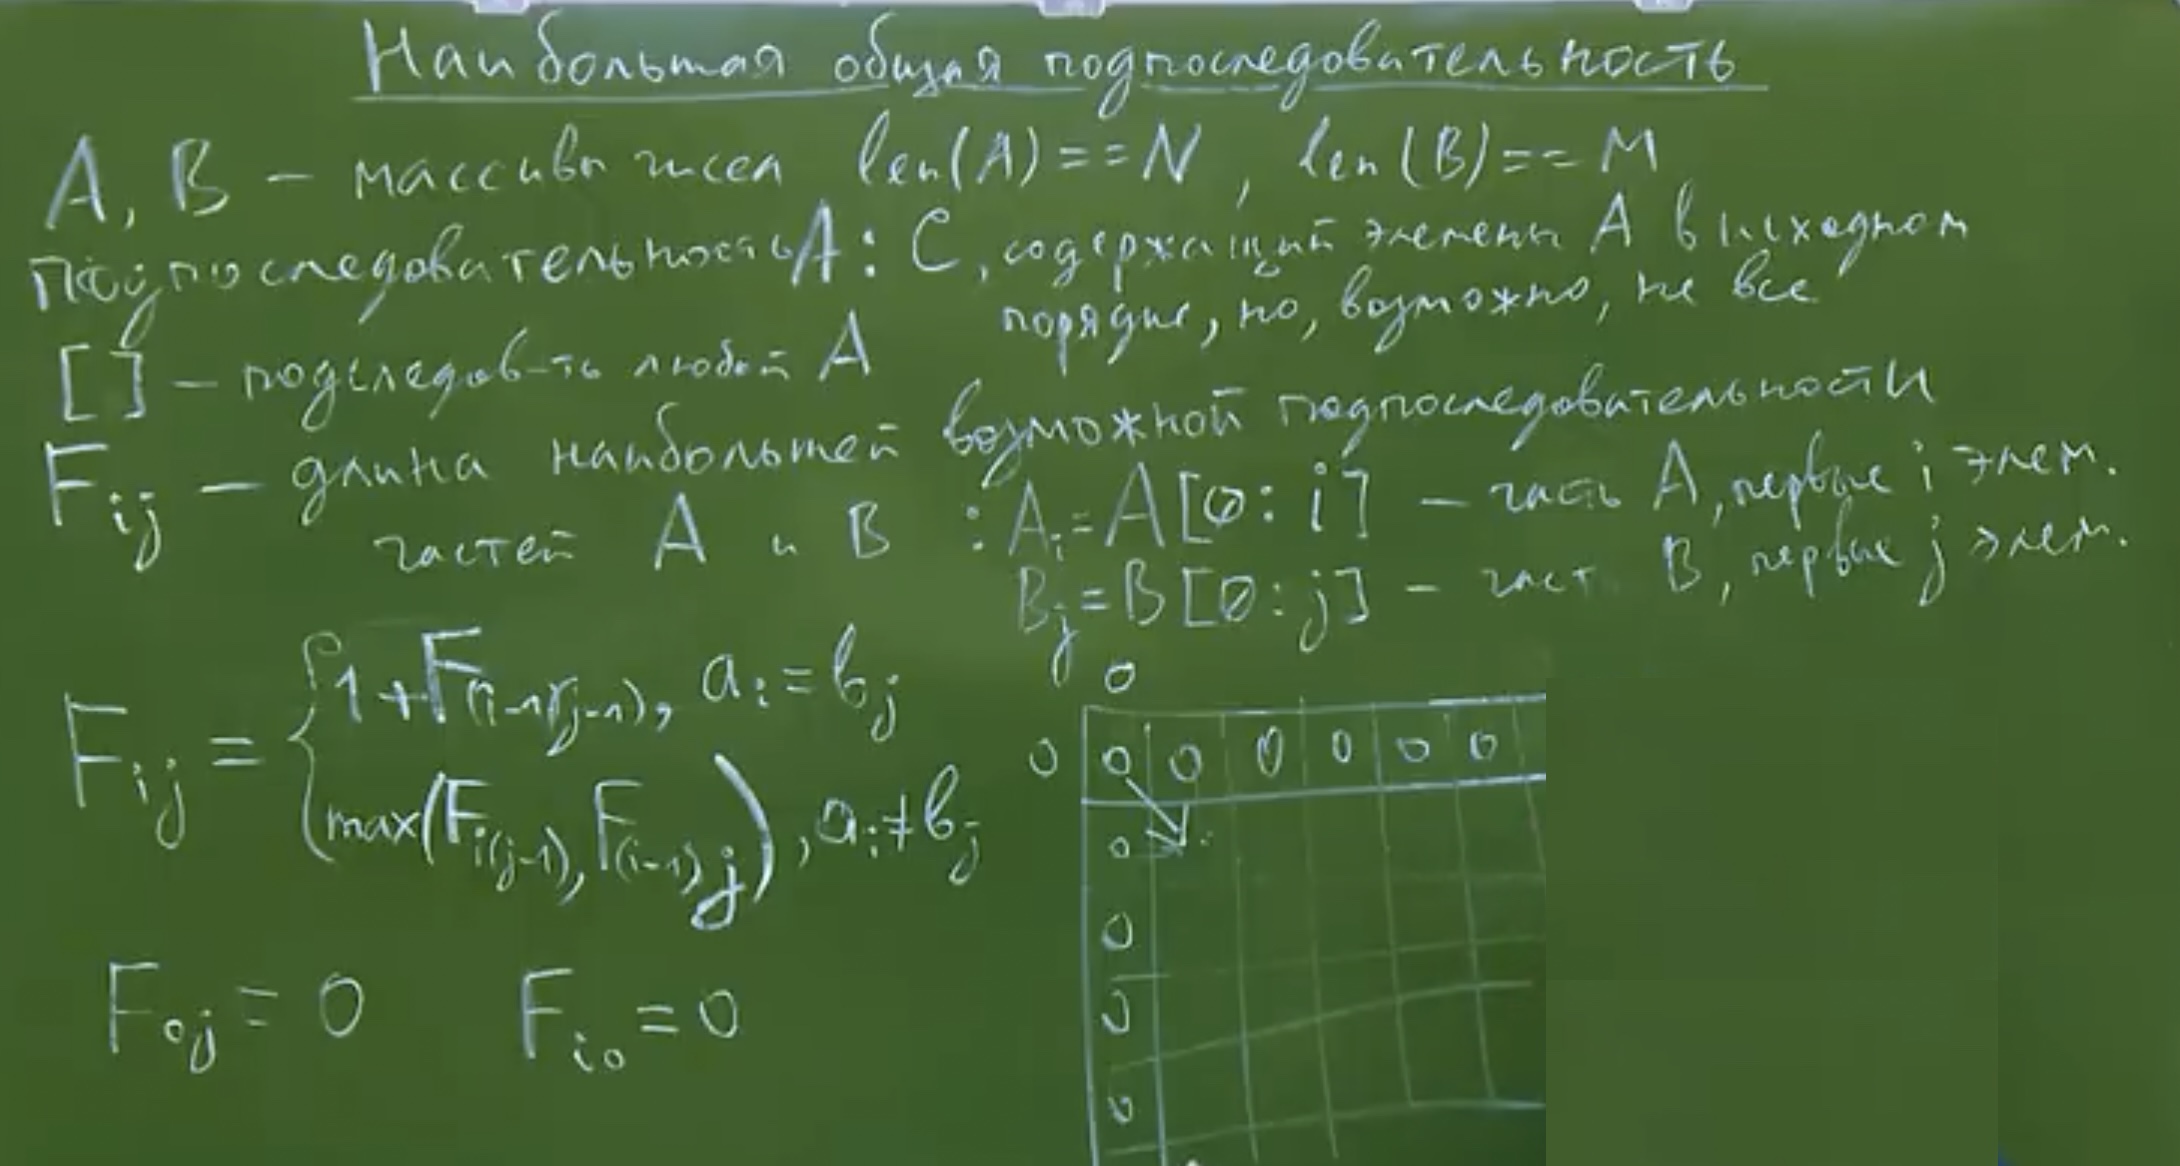 Наибольшая общая подпоследовательность
A, B – массивы чисел len(A)==N, len(B)==M
Подпоследовательность A: C, содержащий элементы A в исходном
порядке, но, возможно, не все
[] – подследов-ть любой A
Fij – длина наибольшей возможной подпоследовательности
частей A и B : Ai=A[0:i] – часть A, первые i элем.
Bj=B[0:j] – част B, первые j элем.
Fij = { 1+F(i-1)(j-1), ai=bj
max(Fi(j-1), F(i-1)j), ai≠bj
F0j=0 Fi0=0
0
0 0 0 0 0 0 0
0
0
0
0